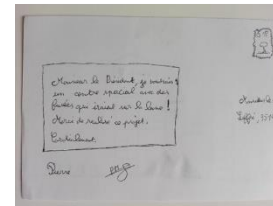 Monsieur le Président, je voudrais
un centre spacial avec des
fusées qui iraient sur la lune !
Merci de réalisé ce projet.
Cordialement.
Pierre